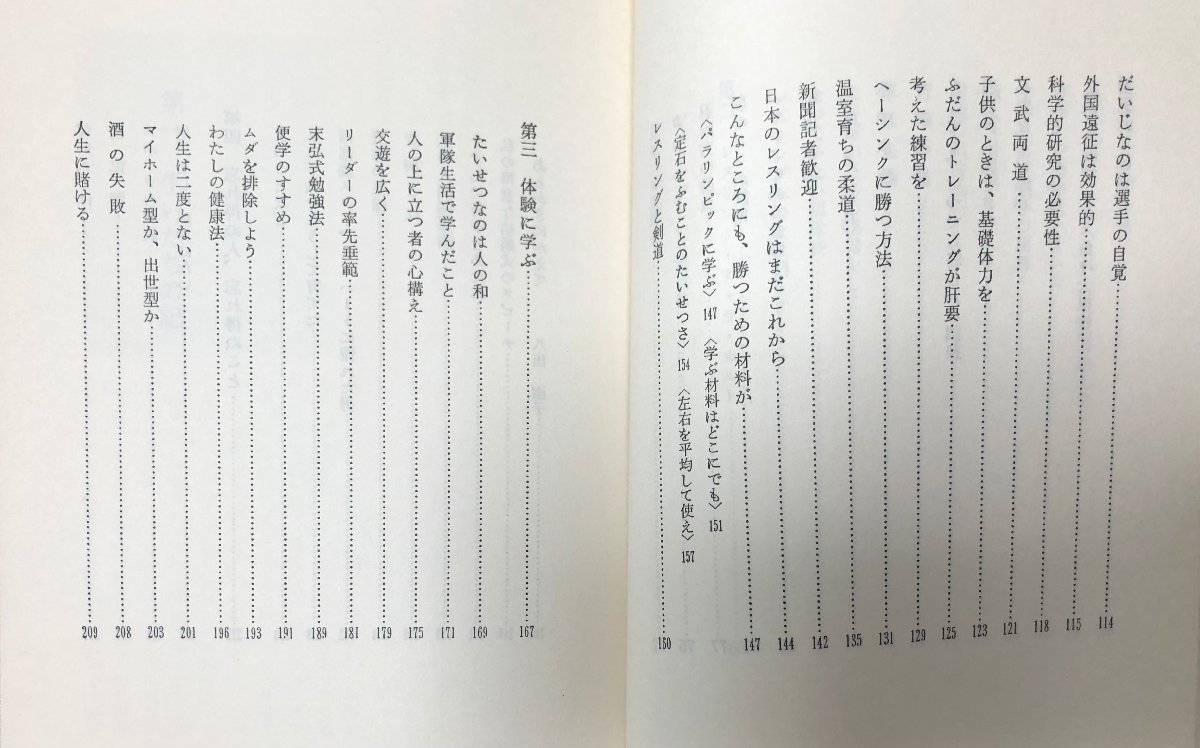 だいじなのは選手の自覚……114
外国遠征は効果的……115
科学的研究の必要性……118
文武両道……121
子供のときは、基礎体力を……123
ふだんのトレーニングが肝要……125
考えた練習を……129
ヘーシンクに勝つ方法……131
温室育ちの柔道……135
新聞記者歓迎……142
日本のレスリングはまだこれから……144
こんなところにも、勝つための材料が……147
〈パラリンピックに学ぶ〉147 〈学ぶ材料はどこにでも〉151
〈定石をふむことのたいせつさ〉154 〈左右を平均して使え〉157
レスリングと剣道……160
第三 体験に学ぶ……167
たいせつなのは人の和……169
軍隊生活で学んだこと……171
人の上に立つ者の心構え……175
交遊を広く……179
リーダーの率先垂範……181
末弘式勉強法……189
便学のすすめ……191
ムダを排除しよう……193
わたしの健康法……196
人生は二度とない……201
マイホーム型か、出世型か……203
酒の失敗……208
人生に賭ける……209